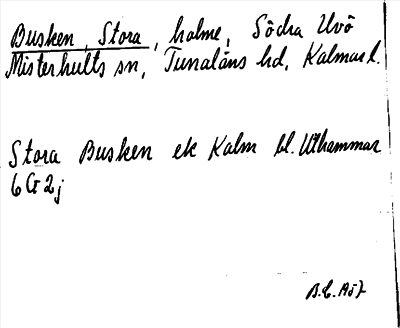 Busken, Stora, holme, Södra Uvö
Misterhults sn, Tunaläns hd, Kalmar l.
Stora Busken ek Kalm bl. Uthammar
6 G 2 j